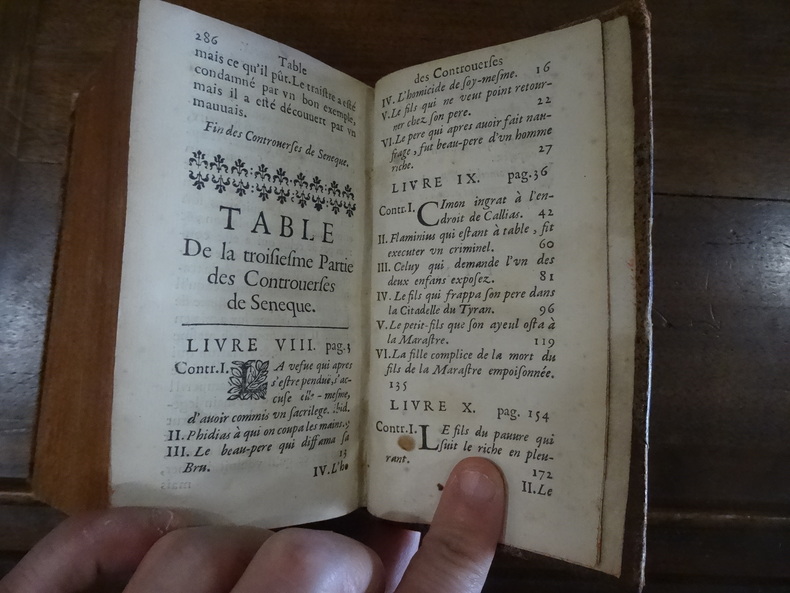 286
Table
mais ce qu'il pût. Le traistre a esté
condamné par vn bon exemple,
mais il a esté découuert par vn
mauuais.
Fin des Controuerses de Seneque.
TABLE
De la troisiesme Partie
des Controuerses
de Seneque.
LIVRE VIII. pag.3
Contr. I. LA vefue qui apres
s'estre penduë, s'ac-
cuse elle-mesme,
d'auoir commis vn sacrilege. ibid.
II. Phidias à qui on coupa les mains.
III. Le beau-pere qui diffama sa
Bru. 13
IV. L'ho
des Controuerses
IV. L'homicide de soy-mesme. 16
V. Le fils qui ne veut point retour-
ner chez son pere. 22
VI. Le pere qui apres auoir fait nau-
frage, fut beau-pere d'vn homme
riche. 27
LIVRE IX. pag.36
Contr. I. CImon ingrat à l'en-
droit de Callias. 42
II. Flaminius qui estant à table, fit
executer vn criminel. 60
III. Celuy qui demande l'vn des
deux enfans exposez. 81
IV. Le fils qui frappa son pere dans
la Citadelle du Tyran. 96
V. Le petit-fils que son ayeul osta à
la Marastre. 119
VI. La fille complice de la mort du
fils de la Marastre empoisonnée.
135
LIVRE X. pag. 154
Contr. I. LE fils du pauure qui
suit le riche en pleu-
rant. 172
II. Le